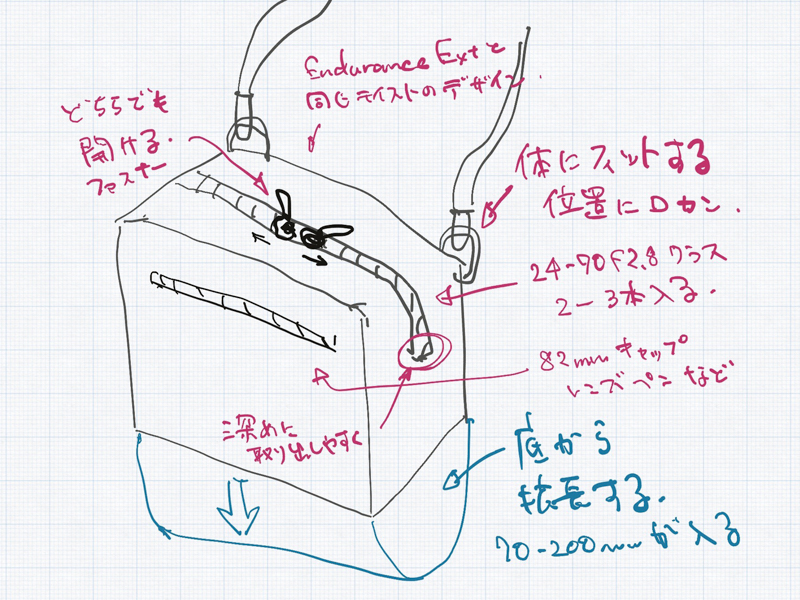 Endurance Extと
同じテイストのデザイン.
どちらでも
開ける.
ファスナー
体にフィットする
位置にDカン.
24-70 f2.8クラス
2-3本入る.
82mmキャップ
レンズペンなど
深めに
取り出しやすく
底から
拡長する.
70-200mmが入る